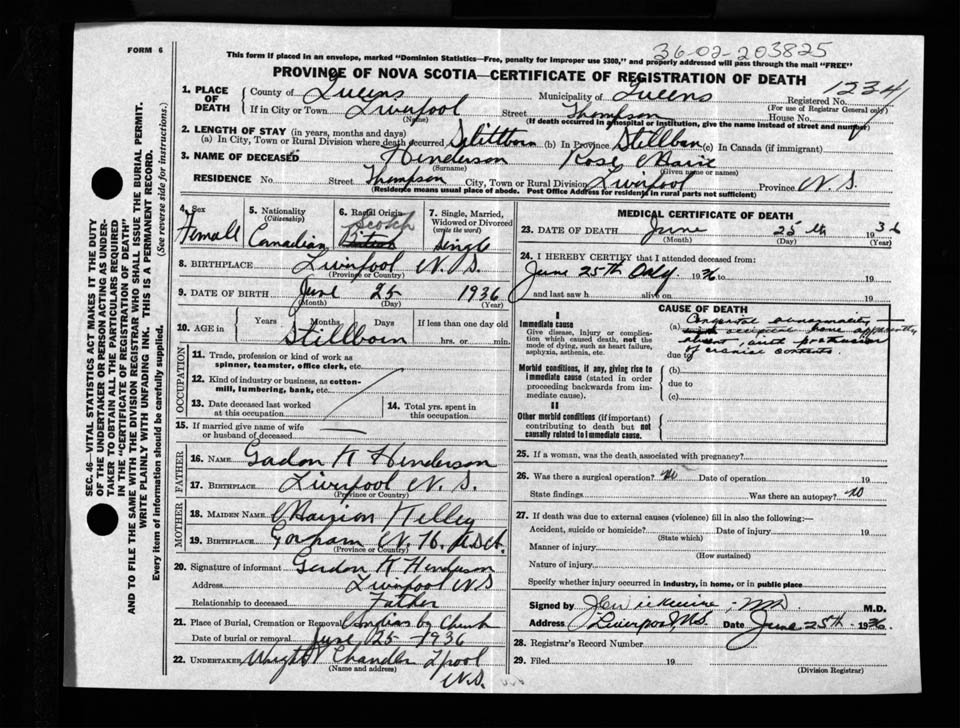 FORM 6
36-02-203825
This form if placed in an envelope, marked "Dominion Statistics—Free, penalty for improper use $300," and properly addressed will pass through the mail "FREE"
PROVINCE OF NOVA SCOTIA—CERTIFICATE OF REGISTRATION OF DEATH
1. PLACE OF DEATH
County of Queens Municipality of Queens Registered No. 1234
(For use of Registrar General only)
If in City or Town Liverpool Street Thompson House No.
(Name) (If death occurred in a hospital or institution, give the name instead of street and number)
2. LENGTH OF STAY (in years, months and days)
(a) In City, Town or Rural Division where death occurred (b) In Province (c) In Canada (if immigrant)
3. NAME OF DECEASED Henderson Rose Marie
(Surname) (Given name or names)
RESIDENCE No. Street Thompson City, Town or Rural Division Liverpool Province N.S
(Residence means usual place of abode. Post Office Address for residents in rural parts not sufficient)
SEC. 46—VITAL STATISTICS ACT MAKES IT THE DUTY
OF THE UNDERTAKER OR PERSON ACTING AS UNDER-
TAKER TO OBTAIN ALL THE PARTICULARS REQUIRED
IN THE "CERTIFICATE OF REGISTRATION OF DEATH"
AND TO FILE THE SAME WITH THE DIVISION REGISTRAR WHO SHALL ISSUE THE BURIAL PERMIT.
WRITE PLAINLY WITH UNFADING INK. THIS IS A PERMANENT RECORD.
Every item of information should be carefully supplied. (See reverse side for instructions.)
4. Sex Female
5. Nationality (Citizenship) Canadian
6. Racial Origin Scotch
7. Single, Married, Widowed or Divorced (write the word) Single
8. BIRTHPLACE Liverpool N.S.
(Province or Country)
9. DATE OF BIRTH June 25 1936
(Month) (Day) (Year)
10. AGE in Years Months Days If less than one day old
Stillborn hrs. or min.
OCCUPATION
11. Trade, profession or kind of work as
spinner, teamster, office clerk, etc.
12. Kind of industry or business, as cotton-
mill, lumbering, bank, etc.
13. Date deceased last worked
at this occupation
14. Total yrs. spent in
this occupation
15. If married give name of wife
or husband of deceased
FATHER
16. NAME Gordon K Henderson
17. BIRTHPLACE Liverpool N.S.
(Province or Country)
MOTHER
18. MAIDEN NAME Marion Kelley
19. BIRTHPLACE Gorham N.H.
(Province or Country)
20. Signature of informant Gordon K Henderson
Address Liverpool NS
Relationship to deceased Father
21. Place of Burial, Cremation or Removal
Date of burial or removal June 25-1936
22. UNDERTAKER Wright Chandler L'pool
(Name and address) N.S.
MEDICAL CERTIFICATE OF DEATH
23. DATE OF DEATH June 25th 1936
(Month) (Day) (Year)
24. I HEREBY CERTIFY that I attended deceased from:
June 25th Only 1936 to 19
and last saw h alive on 19
CAUSE OF DEATH
I
Immediate cause
Give disease, injury or complica-
tion which caused death, not the
mode of dying, such as heart failure,
asphyxia, asthenia, etc.
(a) Congenital abnormality —
occipital bone apparently
absent, with protrusion
due to of cranial contents.
Morbid conditions, if any, giving rise to
immediate cause (stated in order
proceeding backwards from im-
mediate cause).
(b)
due to
(c)
II
Other morbid conditions (if important)
contributing to death but not
causally related to immediate cause.
25. If a woman, was the death associated with pregnancy?
26. Was there a surgical operation? No Date of operation 19
State findings Was there an autopsy? No
27. If death was due to external causes (violence) fill in also the following:—
Accident, suicide or homicide? Date of injury 19
(State which)
Manner of injury
(How sustained)
Nature of injury
Specify whether injury occurred in industry, in home, or in public place
Signed by M.D.
Address Liverpool, N.S. Date June 25th 1936
28. Registrar's Record Number
29. Filed 19
(Division Registrar)